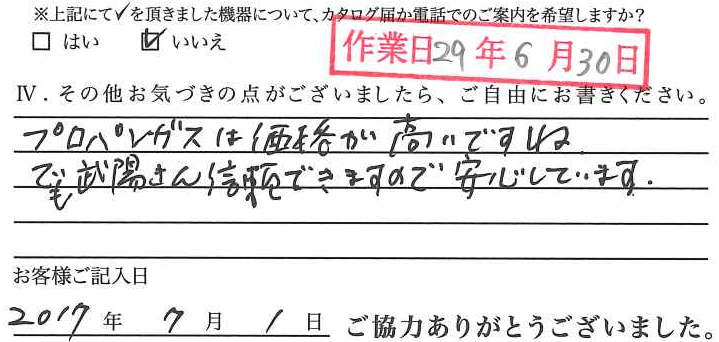 ※上記にて✓を頂きました機器について、カタログ届か電話でのご案内を希望しますか？
□ はい ☑ いいえ
作業日29年6月30日
Ⅳ．その他お気づきの点がございましたら、ご自由にお書きください。
プロパンガスは価格が高いですしね
でも武陽さん信頼できますので安心しています.
お客様ご記入日
2017 年 7 月 1 日 ご協力ありがとうございました。